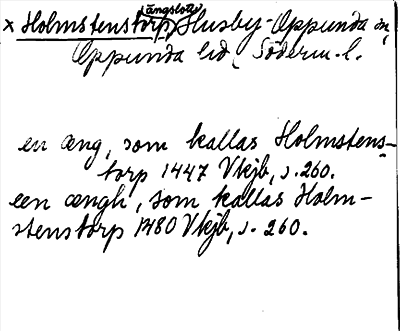 x Holmstenstorp, ängslott, Husby-Oppunda sn,
Oppunda hd, Söderm. l.
en æng, som kallas Holmstens-
torp 1447 Vkjb, s. 260.
een ængh, som kallas Holm-
stenstorp 1480 Vkjb, s. 260.